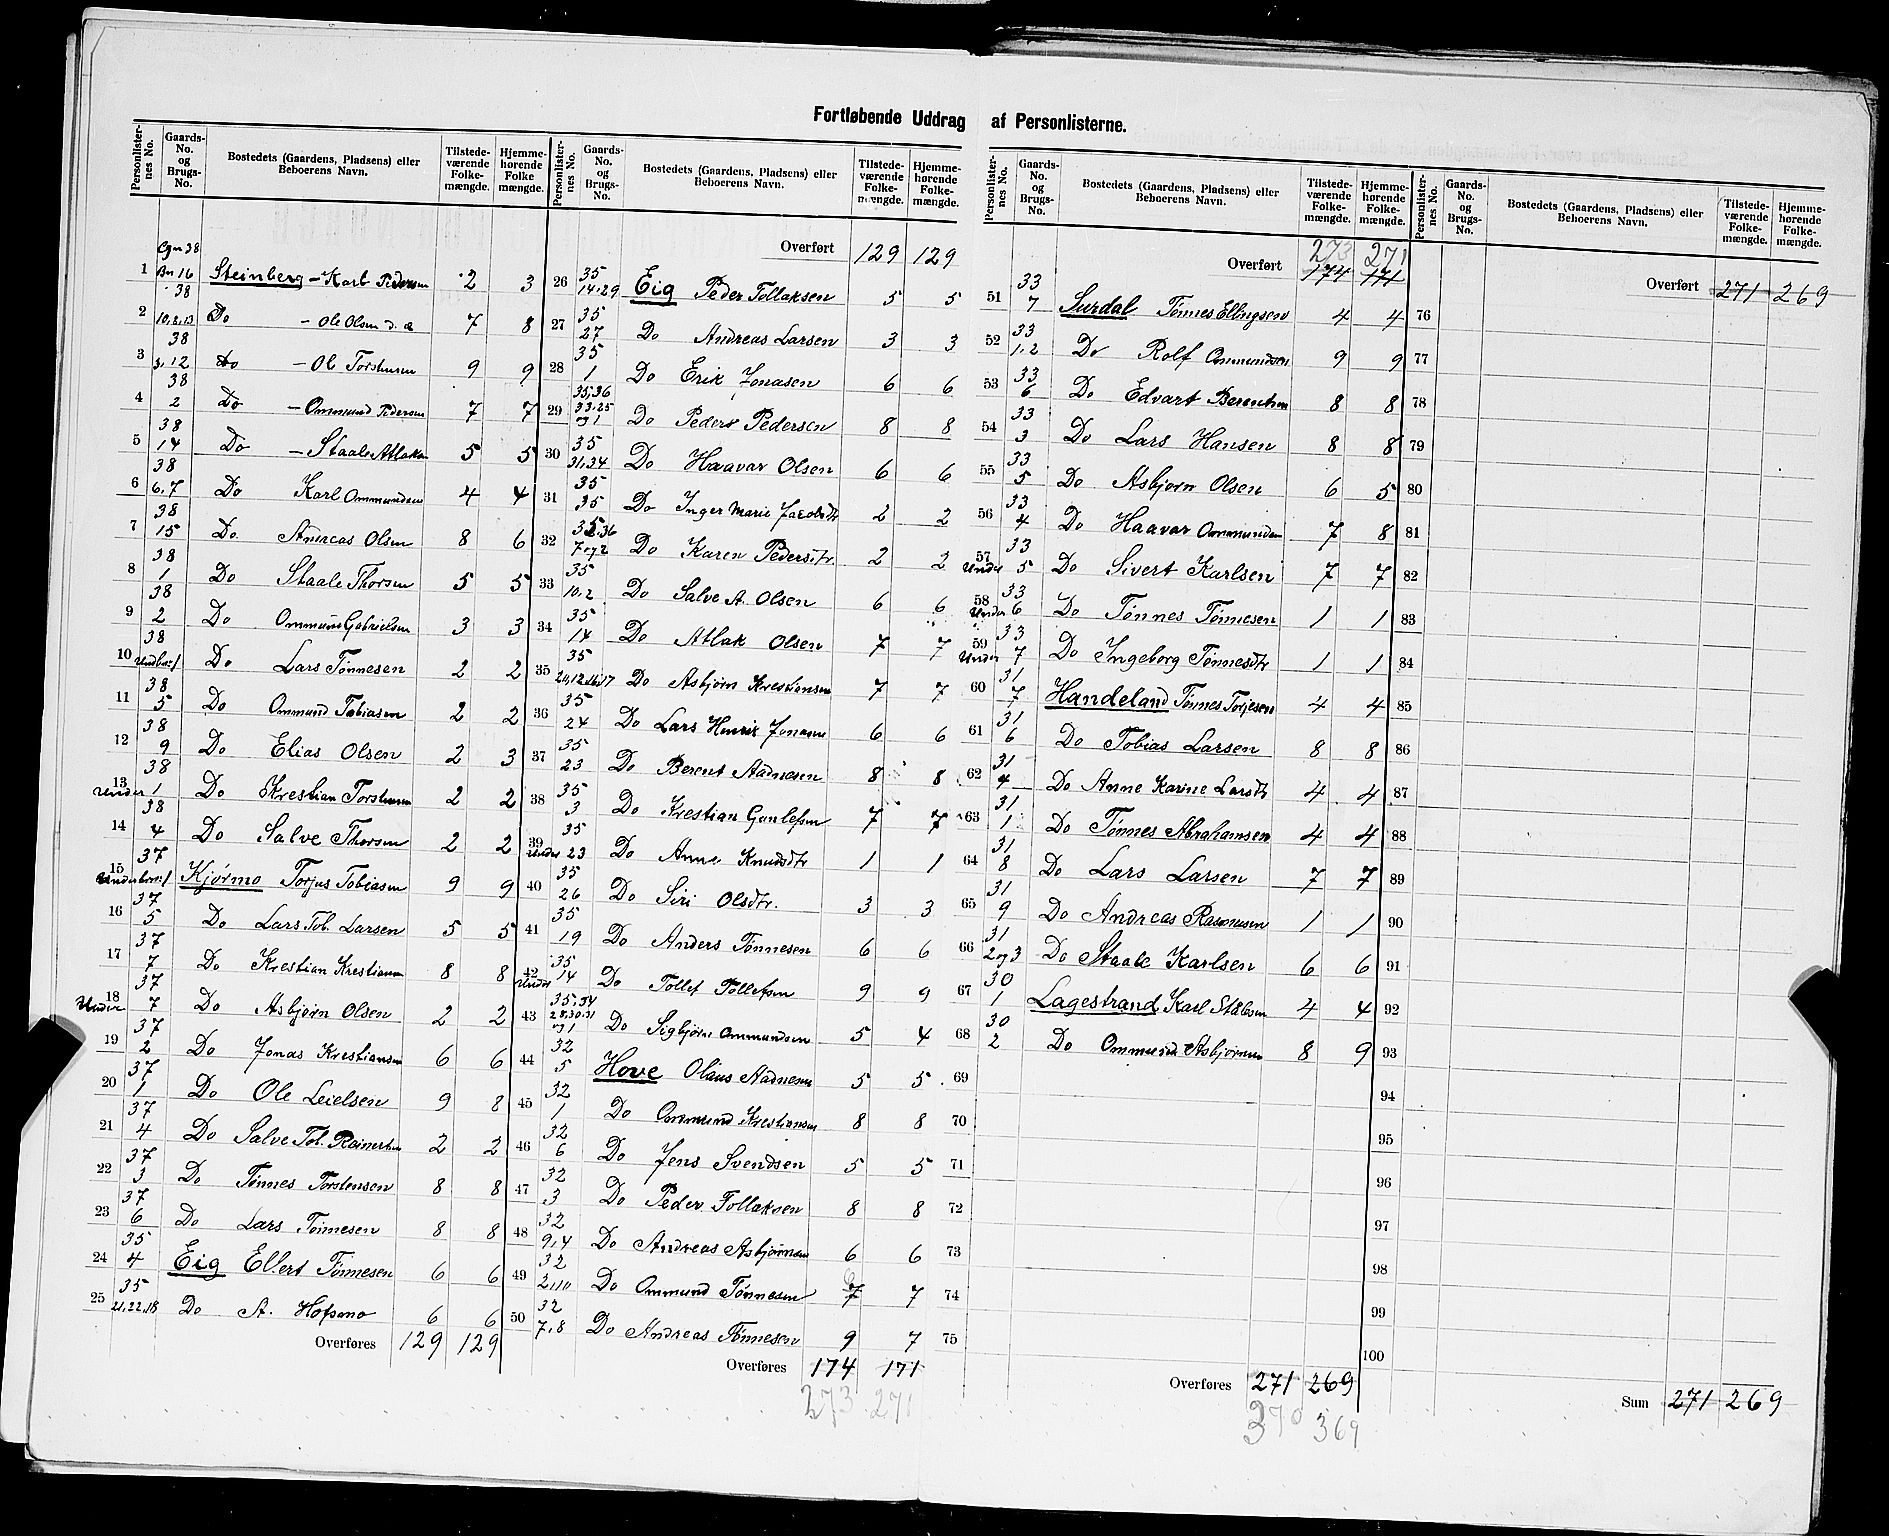 Fortløbende Uddrag af Personlisterne.
Personlisternes No. Gaards-No. og Brugs-No. Bostedets (Gaardens, Pladsens) eller Beboerens Navn. Tilstedeværende Folkemængde. Hjemmehørende Folkemængde.
Gn 38
1 Bn 16 Steinberg - Karl Pedersen 2 3
38
2 10,8,13 Do - Ole Olsen d. æ 7 8
38
3 3,12 Do - Ol Torstensen 9 9
38
4 2 Do - Ommund Pedersen 7 7
38
5 14 Do - Staale Atlaksen 5 5
38
6 6,7 Do Karl Ommundsen 4 4
38
7 15 Do Andreas Olsen 8 6
38
8 1 Do Staale Thorsen 5 5
38
9 2 Do Ommund Gabrielsen 3 3
38
10 Do Lars Tønnesen 2 2
38
11 5 Do Ommund Tobiasen 2 2
38
12 9 Do Elias Olsen 2 3
38
13 Under 1 Do Krestian Torstensen 2 2
38
14 4 Do Salve Thorsen 2 2
37
15 Kjørmo Torjus Tobiasen 9 9
37
16 5 Do Lars Tob. Larsen 5 5
37
17 7 Do Krestian Krestiansen 8 8
37
18 Under 7 Do Asbjørn Olsen 2 2
37
19 2 Do Jonas Krestiansen 6 6
37
20 1 Do Ole Leielsen 9 8
37
21 4 Do Salve Tob. Reinertsen 2 2
37
22 3 Do Tønnes Torstensen 8 8
37
23 6 Do Lars Tønnesen 8 8
35
24 4 Eig Elbert Tønnesen 6 6
35
25 21,22,18 Do A. Hofsmo 6 6
Overføres 129 129
Personlisternes No. Gaards-No. og Brugs-No. Bostedets (Gaardens, Pladsens) eller Beboerens Navn. Tilstedeværende Folkemængde. Hjemmehørende Folkemængde.
Overført 129 129
35
26 14.29 Eig Peder Tollaksen 5 5
35
27 27 Do Andreas Larsen 3 3
35
28 1 Do Erik Jonasen 6 6
35,36
29 33.25 og 1 Do Peder Pedersen 8 8
35
30 31,34 Do Haavar Olsen 6 6
35
31 35 Do Inger Marie Jacobsdtr 2 2
35.36
32 7 og 2 Do Karen Pedersdtr 2 2
35
33 10.2 Do Salve A. Olsen 6 6
35
34 14 Do Atlak Olsen 7 7
35
35 Do Asbjørn Krestiansen 7 7
35
36 24 Do Lars Henrik Jonasen 6 6
35
37 23 Do Berent Aadnesen 8 8
35
38 3 Do Krestian Gunlefsen 7 7
35
39 Under 23 Do Anne Knudsdtr 1 1
35
40 26 Do Siri Olsdtr. 3 3
35
41 19 Do Anders Tønnesen 6 6
35
42 Under 14 Do Tollef Tollefsen 9 9
35,34
43 28,30.31 og 1 Do Sigbjørn Ommundsen 5 4
32
44 5 Hove Olaus Aadnesen 5 5
32
45 1 Do Ommund Krestiansen 8 8
32
46 6 Do Jens Svendsen 5 5
32
47 3 Do Peder Tollaksen 8 8
32
48 9,4 Do Andreas Asbjørnsen 6 6
32
49 2,10 Do Ommund Tønnesen 7 7
32
50 7,8 Do Andreas Tønnesen 9 7
Overføres 174 171
273 271
Personlisternes No. Gaards-No. og Brugs-No. Bostedets (Gaardens, Pladsens) eller Beboerens Navn. Tilstedeværende Folkemængde. Hjemmehørende Folkemængde.
273 271
Overført 174 171
33
51 7 Surdal Tønnes Ellingsen 4 4
33
52 1,2 Do Rolf Ommundsen 9 9
33
53 6 Do Edvart Berentsen 8 8
33
54 3 Do Lars Hansen 8 8
33
55 5 Do Asbjørn Olsen 6 5
33
56 4 Do Haavar Ommundsen 7 8
33
57 Under 5 Do Sivert Karlsen 7 7
33
58 Under 6 Do Tønnes Tønnesen 1 1
33
59 Under 7 Do Ingeborg Tønnesdtr 1 1
31
60 7 Handeland Tønnes Torjesen 4 4
31
61 6 Do Tobias Larsen 8 8
31
62 4 Do Anne Karine Larsdtr 4 4
31
63 1 Do Tønnes Abrahamsen 4 4
31
64 8 Do Lars Larsen 7 7
31
65 9 Do Andreas Rasmusen 1 1
31
66 2 og 3 Do Staale Karlsen 6 6
30
67 1 Lagestrand Karl Stålesen 4 4
30
68 2 Do Ommund Asbjørnsen 8 9
69
70
71
72
73
74
75
Overføres 271 269
370 369
Personlisternes No. Gaards-No. og Brugs-No. Bostedets (Gaardens, Pladsens) eller Beboerens Navn. Tilstedeværende Folkemængde. Hjemmehørende Folkemængde.
Overført 271 269
76
77
78
79
80
81
82
83
84
85
86
87
88
89
90
91
92
93
94
95
96
97
98
99
100
Sum 271 269